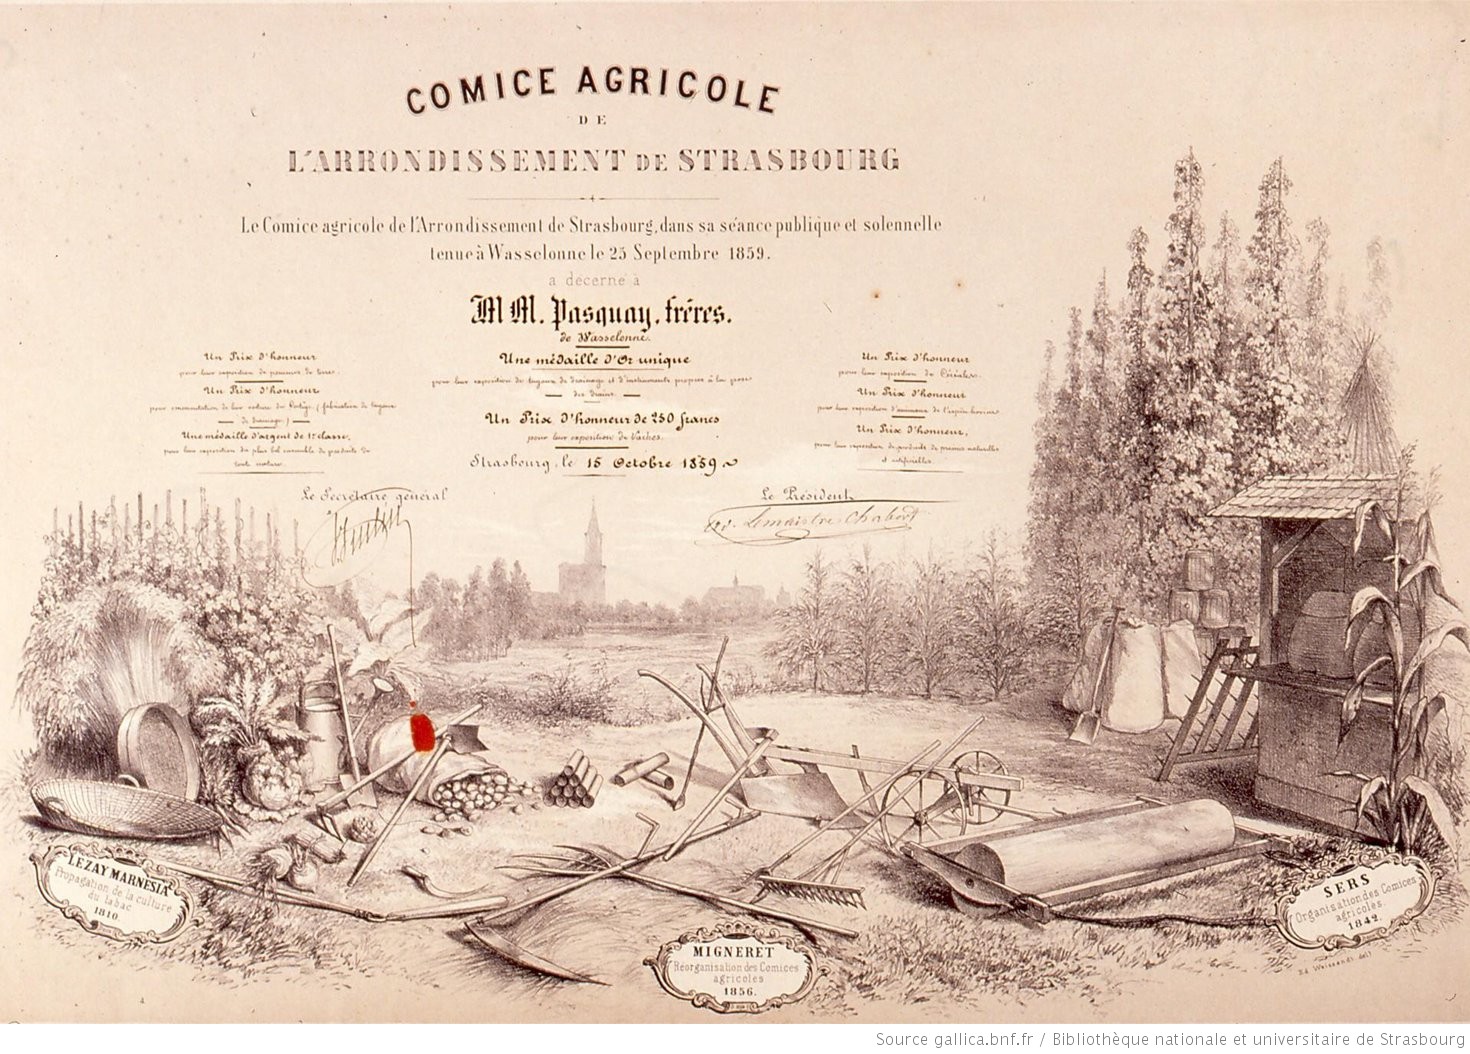 COMICE AGRICOLE
DE
L'ARRONDISSEMENT DE STRASBOURG
Le Comice agricole de l'Arrondissement de Strasbourg, dans sa séance publique et solennelle
tenue à Wasselonne le 25 Septembre 1859.
a décerné à
MM. Pasquay, frères.
de Wasselonne.
Un Prix d'honneur
pour leur exposition de pommes de terre.
Un Prix d'honneur
pour leur de leur (fabrication de tuyaux
de drainage)
Une médaille d'argent de 1re classe,
pour leur exposition du plus bel ensemble de produits de
toute nature.
Une médaille d'Or unique
pour leur exposition de tuyaux de drainage et d'instruments propres à la pose
des drains.
Un Prix d'honneur de 250 francs
pour leur exposition de Vaches.
Strasbourg, le 15 Octobre 1859
Un Prix d'honneur
pour leur exposition de Céréales.
Un Prix d'honneur
pour leur exposition d'animaux de l'espèce bovine
Un Prix d'honneur,
pour leur exposition de produits de prairies naturelles
et artificielles.
Le Secrétaire général
Le Président
Lemaistre Chabert
LEZAY MARNESIA
Propagation de la culture
du tabac
1810
MIGNERET
Réorganisation des Comices
agricoles
1856.
SERS
Organisation des Comices
agricoles.
1842
Ed. Weissandt del.
Source gallica.bnf.fr / Bibliothèque nationale et universitaire de Strasbourg